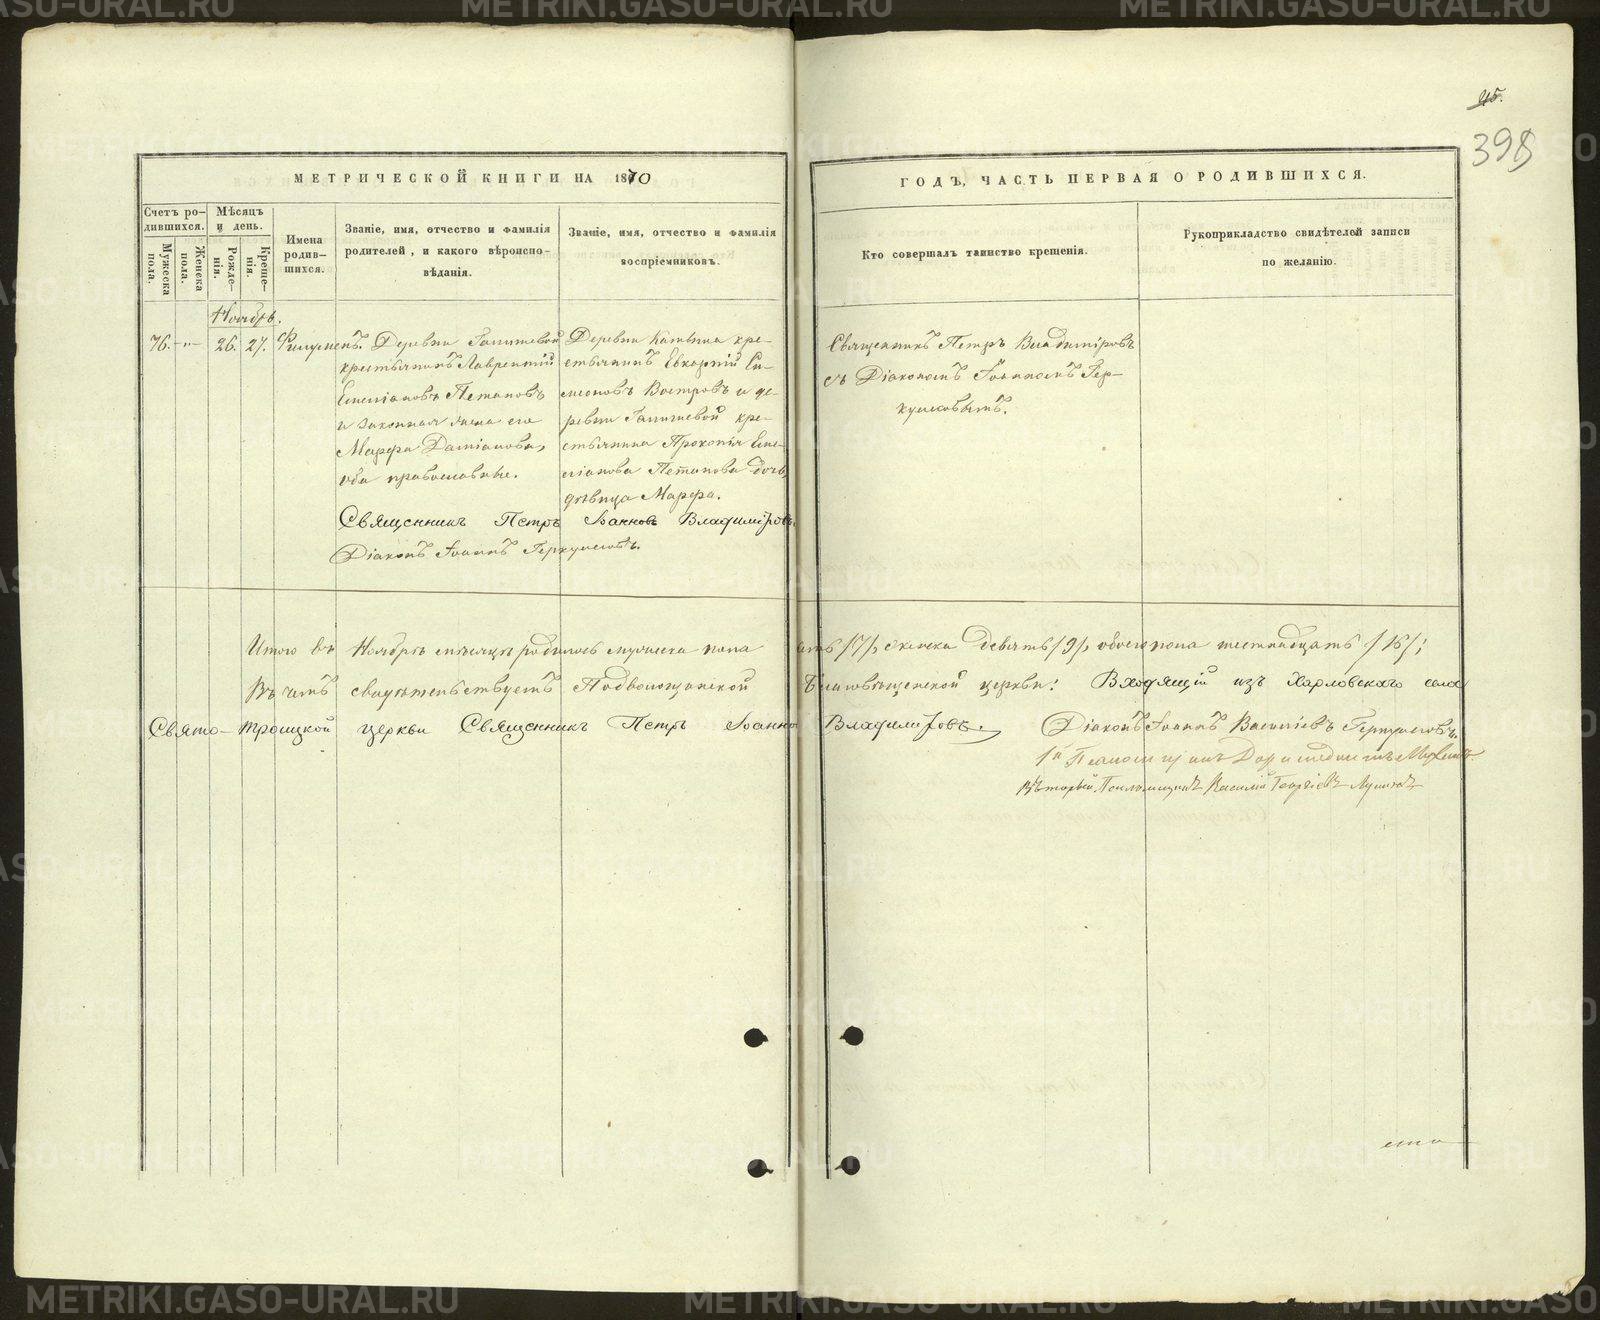 45.
398
МЕТРИЧЕСКОЙ КНИГИ НА 1870
ГОДЪ, ЧАСТЬ ПЕРВАЯ О РОДИВШИХСЯ.
Счетъ ро-
дившихся.
Мужеска пола.
Женска пола.
Мѣсяцъ
и день.
Рожде-
нія.
Креще-
нія.
Имена
родив-
шихся.
Званіе, имя, отчество и фамилія
родителей, и какого вѣроиспо-
вѣданія.
Званіе, имя, отчество и фамилія
воспріемниковъ.
Кто совершалъ таинство крещенія.
Рукоприкладство свидѣтелей записи
по желанію.
Ноябрь.
76. -"- 26. 27. Филуменъ.
Деревни
крестьянинъ Лаврентій
Емеліановъ
и законная жена его
Марфа Даміанова,
оба православные.
Деревни кре-
стьянинъ Евхарпій Си-
меоновъ Востровъ и де-
ревни кре-
стьянина Прокопія Еме-
ліанова дочь,
дѣвица Марфа.
Священникъ Петръ Іоанновъ Владиміровъ.
Діаконъ Іоаннъ Геркулесовъ.
Священникъ Петръ Владиміровъ
съ Діакономъ Іоанномъ Гер-
кулесовымъ.
Итого въ Ноябрѣ мѣсяцѣ родилось мужеска пола /7/, женска девять /9/, обоего пола шестнадцать /16/;
Въ чемъ свидѣтельствуетъ Подволошинской Благовѣщенской церкви: Входящій изъ Харловскаго села
Свято-Троицкой церкви Священникъ Петръ Іоанновъ Владиміровъ.
Діаконъ Іоаннъ Василіевъ Геркулесовъ.
Вторый Псаломщикъ Василій Георгіевъ
METRIKI.GASO-URAL.RU